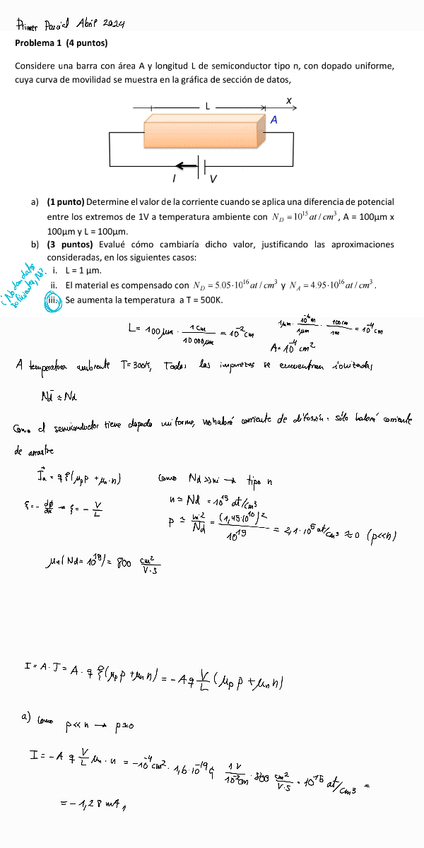 Primer Parcial Abril 2024
Problema 1 (4 puntos)
Considere una barra con área A y longitud L de semiconductor tipo n, con dopado uniforme,
cuya curva de movilidad se muestra en la gráfica de sección de datos,
L x
A
I V
a) (1 punto) Determine el valor de la corriente cuando se aplica una diferencia de potencial
entre los extremos de 1V a temperatura ambiente con N_D = 10^15 at/cm^3, A = 100μm x
100μm y L = 100μm.
b) (3 puntos) Evalué cómo cambiaría dicho valor, justificando las aproximaciones
consideradas, en los siguientes casos:
i. L = 1 μm.
ii. El material es compensado con N_D = 5.05·10^16 at/cm^3 y N_A = 4.95·10^16 at/cm^3.
iii. Se aumenta la temperatura a T = 500K.
L = 100μm · 1cm / 10000μm = 10^-2 cm
1μm · 10^-6 m / 1μm · 100cm / 1m = 10^-4 cm
A = 10^-4 cm^2
A temperatura ambiente T=300K, Todas las impurezas se encuentran ionizadas
Nd ≈ Nd
Como el semiconductor tiene dopado uniforme, no habrá corriente de difusión. Sólo habrá corriente
de arrastre
J = q ξ (μp p + μn · n) Como Nd >> ni → tipo n
ξ = - dφ/dx → ξ = - V/L n ≈ Nd = 10^15 at/cm^3
p ≈ ni^2 / Nd = (1,45·10^10)^2 / 10^15 = 2,1·10^5 at/cm^3 ≈ 0 (p<<n)
μn (Nd = 10^15) = 800 cm^2 / V·s
I = A · J = A · q ξ (μp p + μn n) = - A q V/L (μp p + μn n)
a) Como p << n → p ≈ 0
I = - A q V/L μn · n = -10^-4 cm^2 · 1,6·10^-19 C · 1V / 10^-2 cm · 800 cm^2 / V·s · 10^15 at/cm^3 =
= -1,28 mA